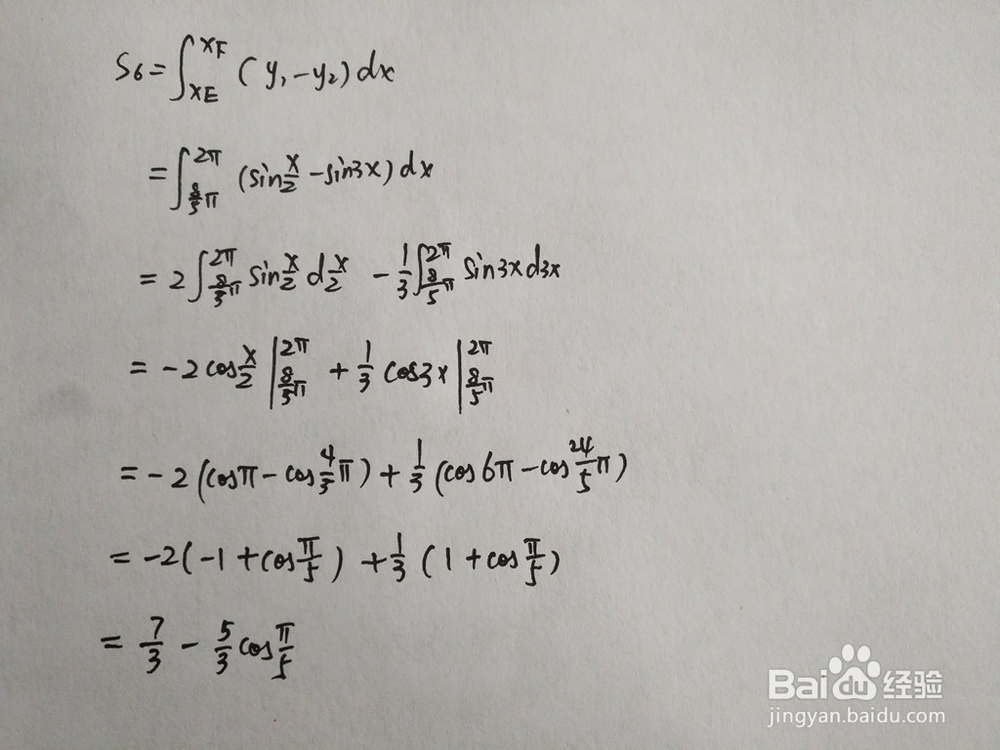 S₆ = ∫_{xE}^{xF} (y₁ - y₂) dx
= ∫_{8/5 π}^{2π} (sin x/2 - sin3x) dx
= 2 ∫_{8/5 π}^{2π} sin x/2 d x/2 - 1/3 ∫_{8/5 π}^{2π} sin3x d3x
= -2 cos x/2 |_{8/5 π}^{2π} + 1/3 cos3x |_{8/5 π}^{2π}
= -2 (cosπ - cos 4/5 π) + 1/3 (cos6π - cos 24/5 π)
= -2 (-1 + cos π/5) + 1/3 (1 + cos π/5)
= 7/3 - 5/3 cos π/5
Bai du 经验
jingyan.baidu.com